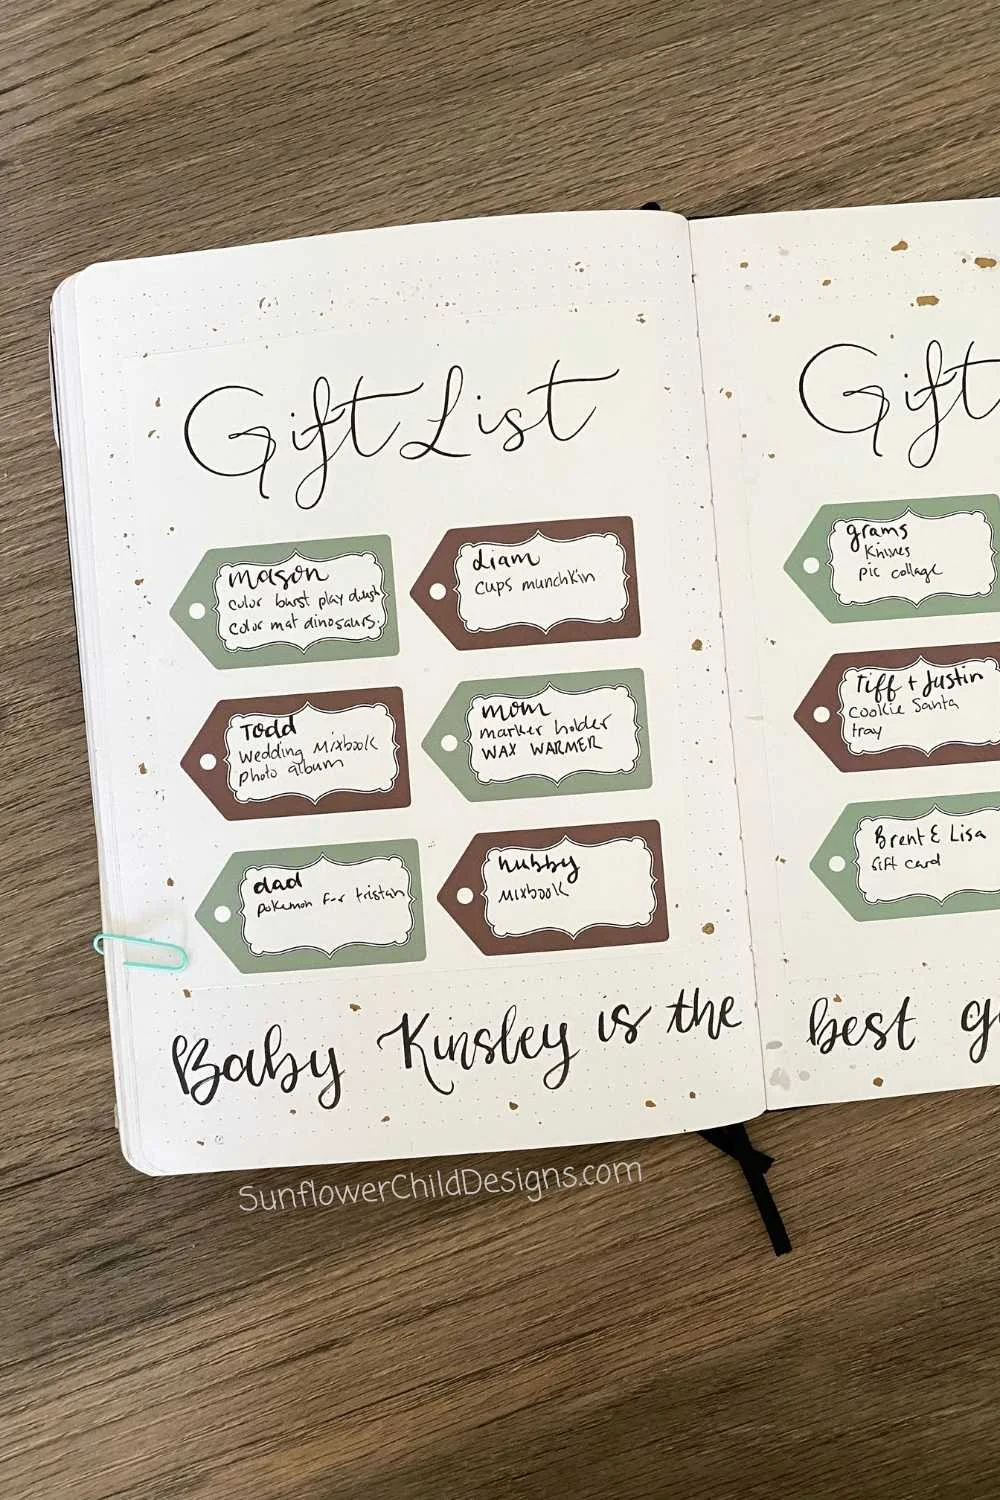 Gift List
mason
color burst play doush
color mat dinosaurs.
Liam
cups munchkin
Todd
wedding Mixbook
photo album
mom
marker holder
WAX WARMER
dad
pokemon for tristan
hubby
mixbook
Baby Kinsley is the
Gift
grams
Knives
pic collage
Tiff + Justin
Cookie Santa
tray
Brent & Lisa
Gift card
best
SunflowerChildDesigns.com